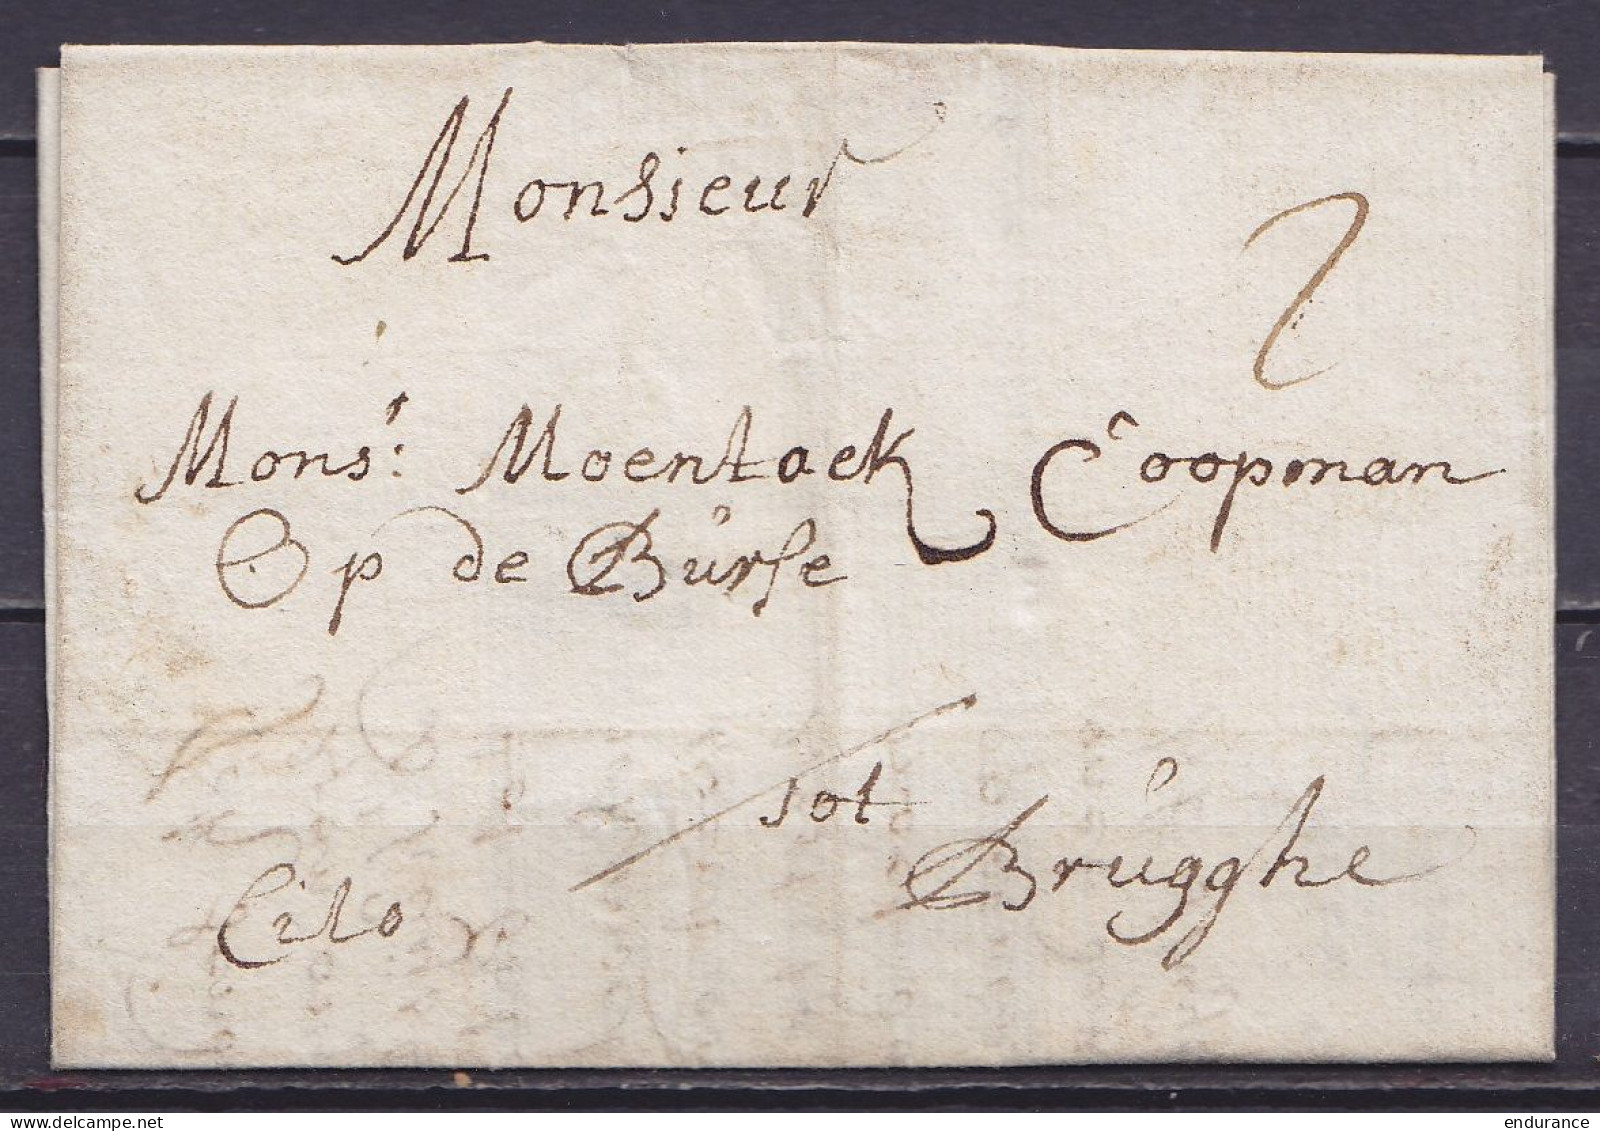 Monsieur
2
Mons:r Moentack Coopman
Op de Bùrse
tot
Brùgghe
Cito
delcampe.net
endurance